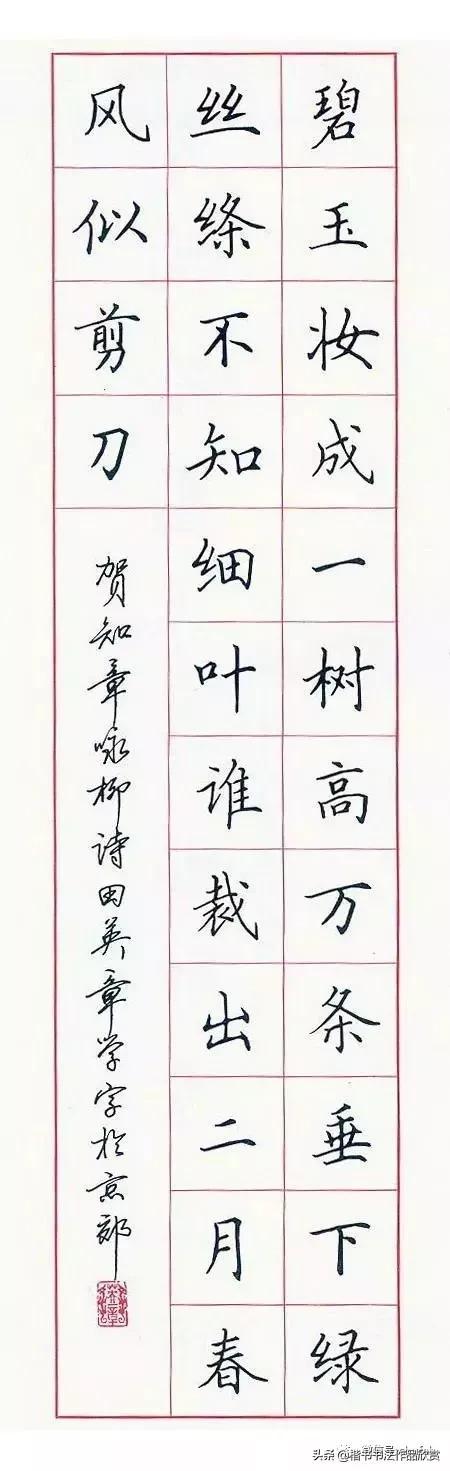 碧玉妆成一树高万条垂下绿
丝绦不知细叶谁裁出二月春
风似剪刀
贺知章咏柳诗田英章学字于京郊
英章
头条@楷书书法作品欣赏